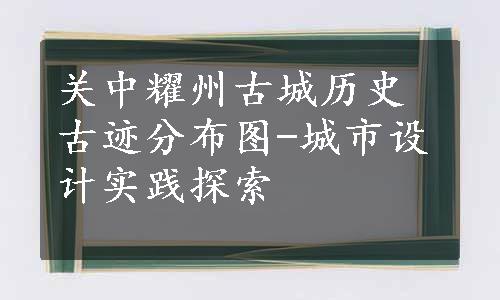 关中耀州古城历史
古迹分布图-城市设
计实践探索